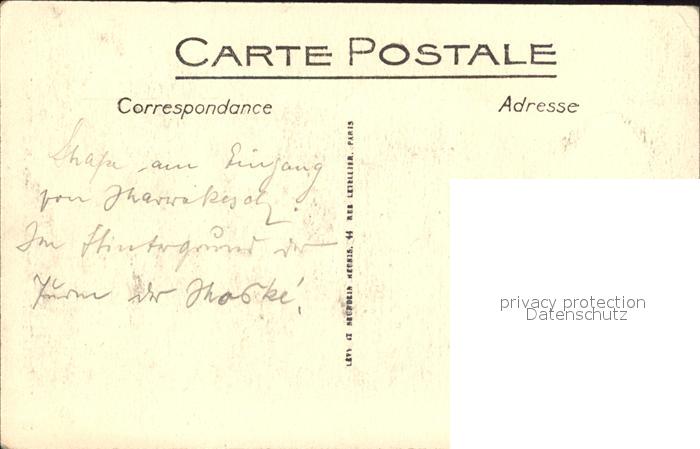 CARTE POSTALE
Correspondance
Adresse
am Eingang
von Marrakesch.
Im Hintergrund der
Turm der Moské.
LÉVY ET NEURDEIN RÉUNIS, 44 RUE LETELLIER, PARIS
privacy protection
Datenschutz